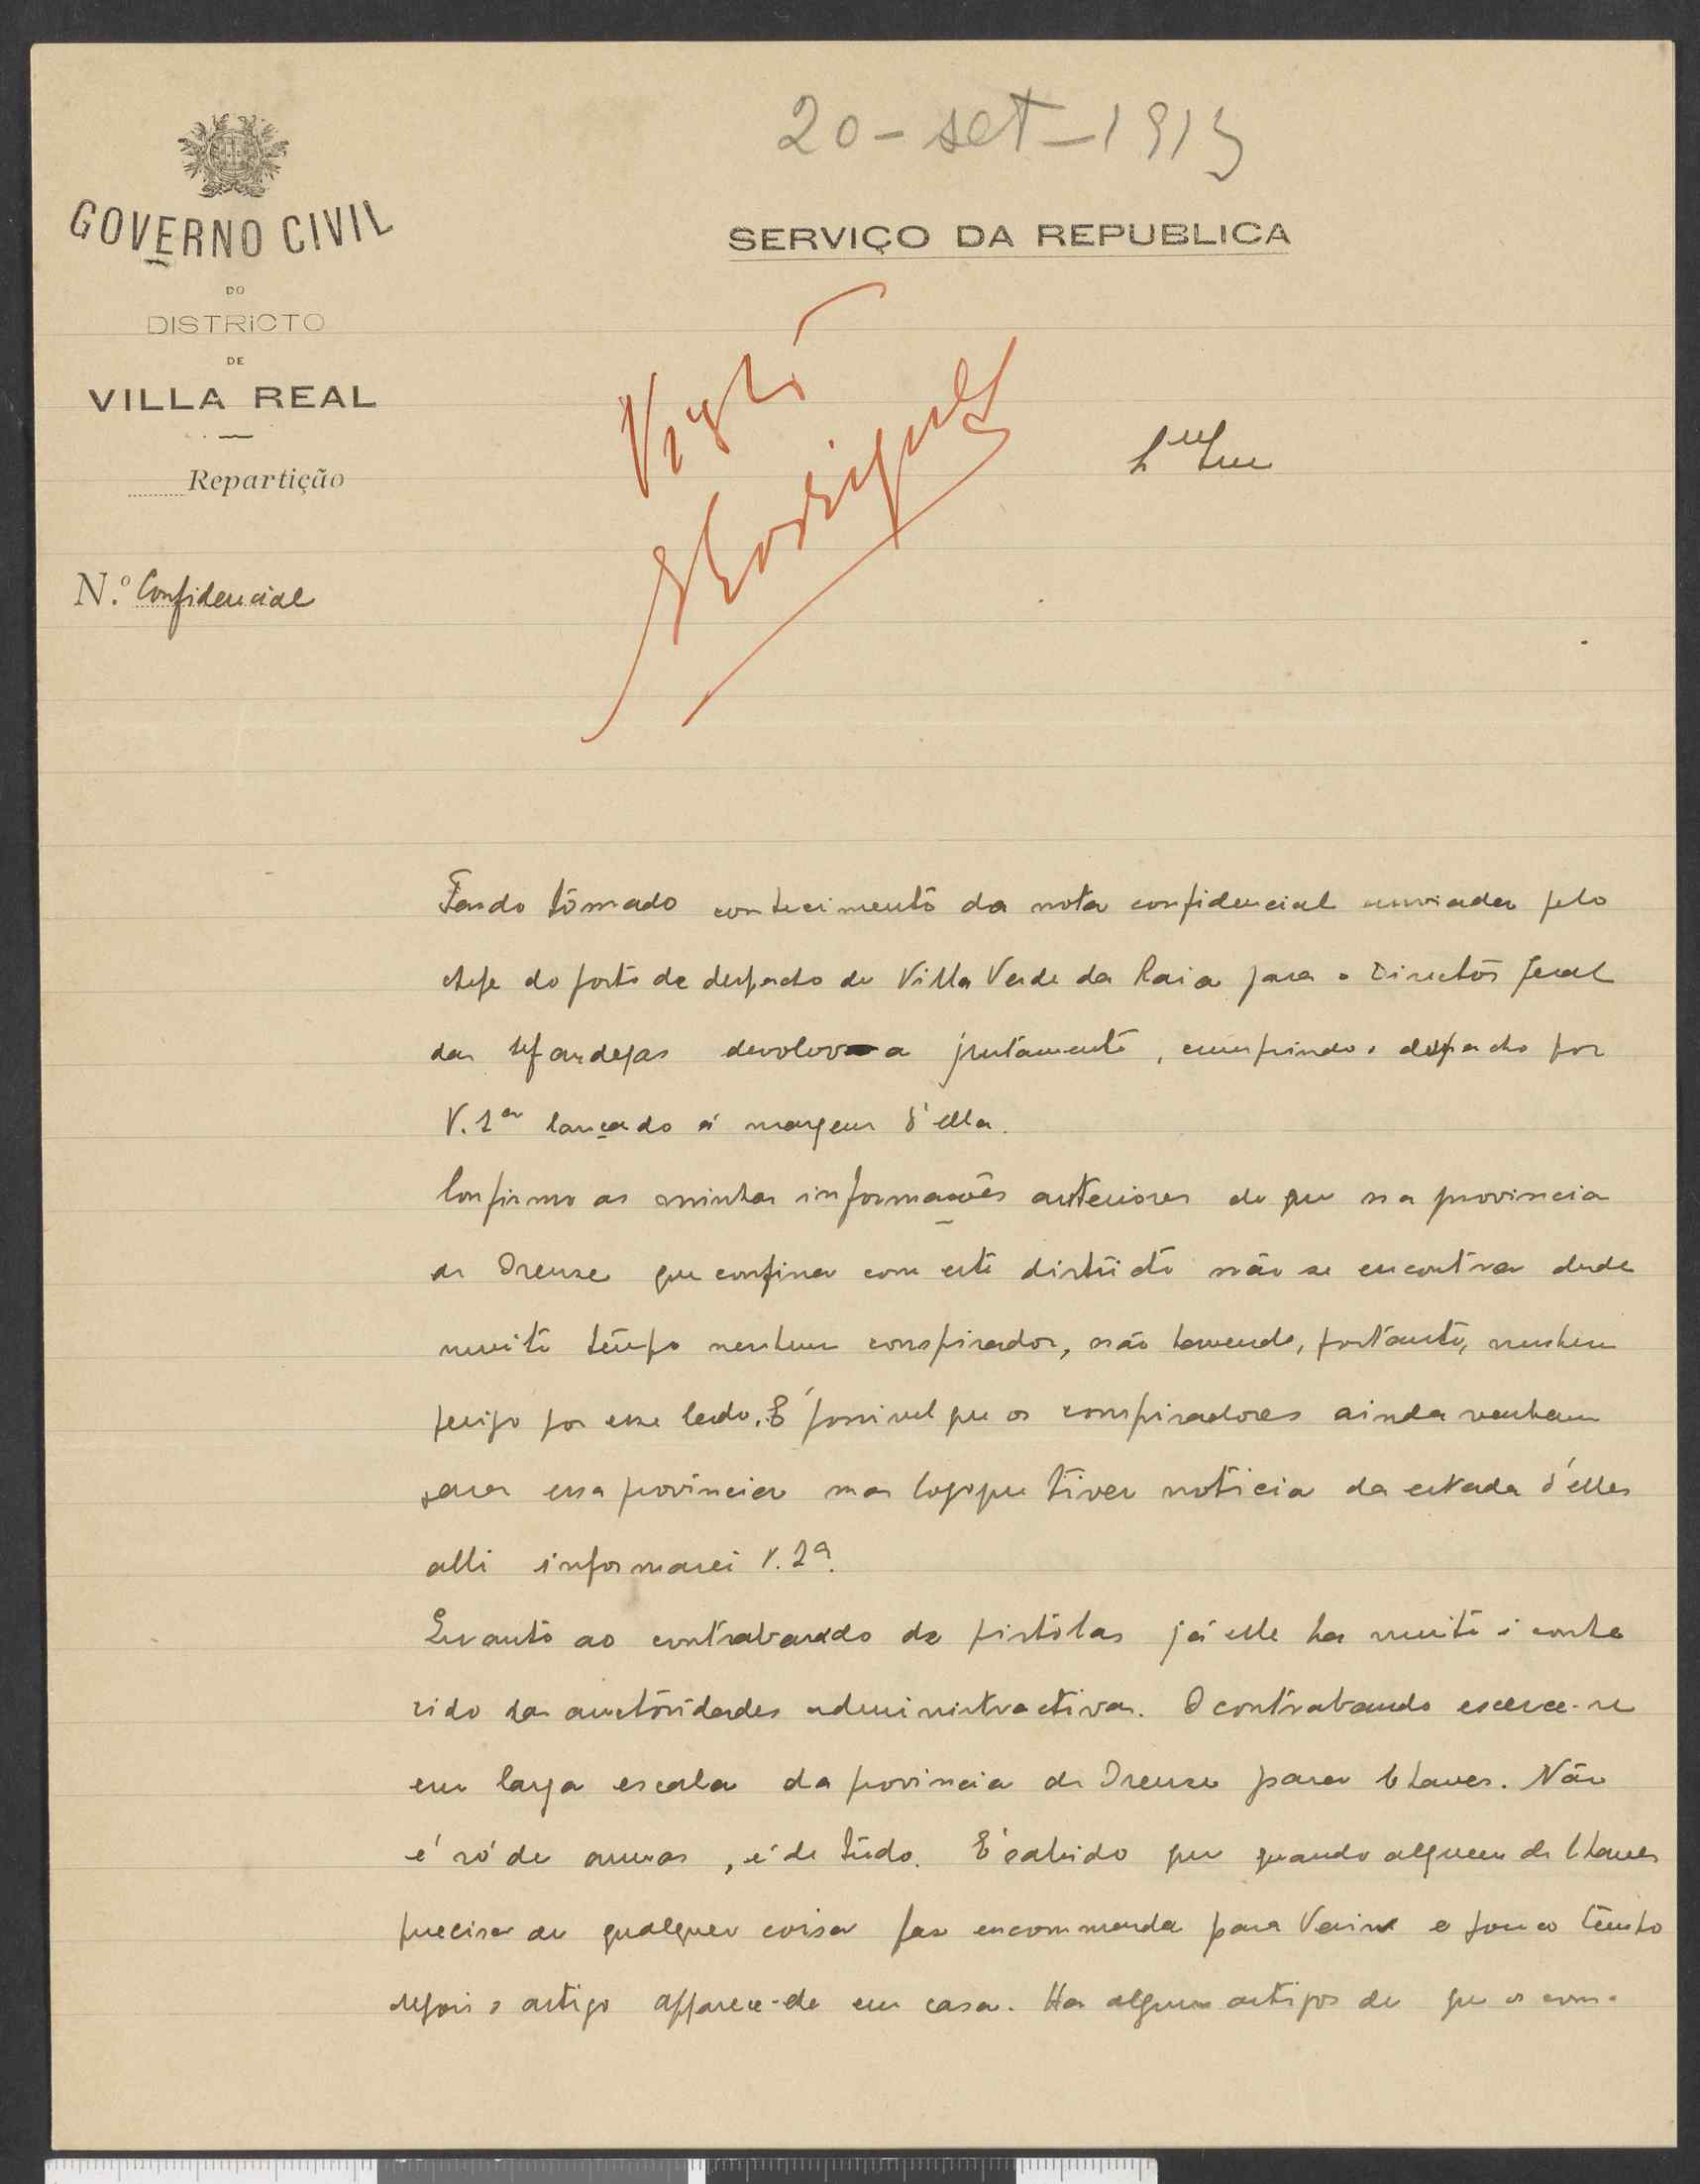 20-set-1913
GOVERNO CIVIL
DO
DISTRICTO
DE
VILLA REAL
Repartição
N.º Confidencial
SERVIÇO DA REPUBLICA
Visto
Rodrigues
Tendo tomado conhecimento da nota confidencial enviada pelo
chefe do posto de despacho de Villa Verde da Raia para o Director Geral
das Alfandegas devolvo-a juntamente, cumprindo o despacho por
V. Exª lançado á margem d'ella.
Confirmo as minhas informações anteriores de que na provincia
de Orense que confina com este districto não se encontra desde
muito tempo nenhum conspirador, não havendo, portanto, nenhum
perigo por esse lado. É possivel que os conspiradores ainda venham
para essa provincia mas logo que tiver noticia da estada d'elles
alli informarei V. Exª.
Emquanto ao contrabando de pistolas já elle ha muito é conhe
cido das auctoridades administractivas. O contrabando exerce-se
em larga escala da provincia de Orense para Chaves. Não
é só de armas, é de tudo. É sabido que quando alguem de Chaves
precisa de qualquer coisa faz encommenda para Verin e pouco tempo
depois o artigo apparece-lhe em casa. Ha alguns artigos de que os com-